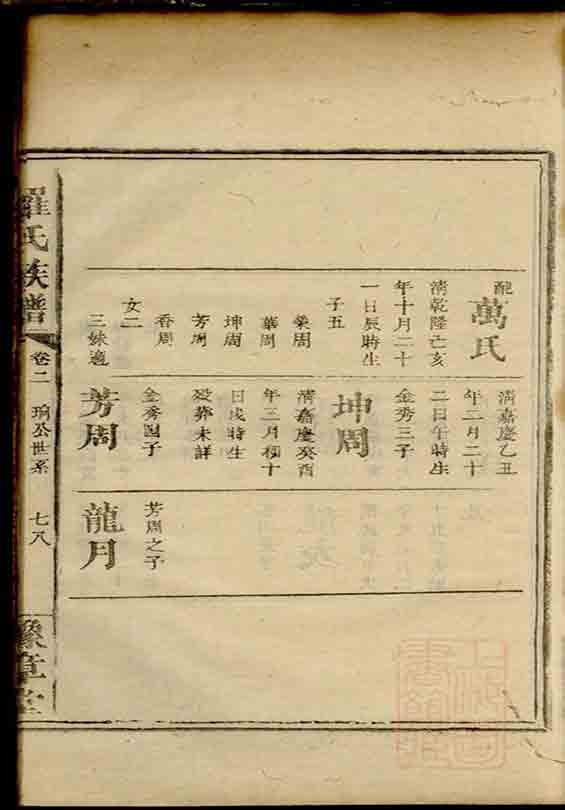 配
萬氏
清乾隆己亥
年十月二十
一日辰時生
子五
榮周
華周
坤周
芳周
香周
女二
三妹適
清嘉慶乙丑
年二月二十
二日午時生
金秀三子
坤周
清嘉慶癸酉
年三月初十
日戌時生
歿葬未詳
金秀四子
芳周
芳周之子
龍月
羅氏族譜
卷二
公世系
七八
豫章堂
上海圖書館藏